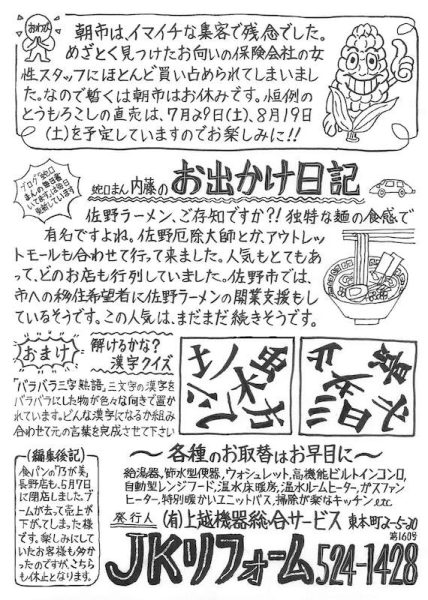 おわび
朝市は、イマイチな集客で残念でした。
めざとく見つけたお向いの保険会社の女
性スタッフにほとんど買い占められてしまいまし
た。なので暫くは朝市はお休みです。恒例の
とうもろこしの直売は、7月29日(土)、8月19日
(土)を予定していますのでお楽しみに!!
蛇口まん 内藤の お出かけ日記
佐野ラーメン、ご存知ですか?!独特な麺の食感で
有名ですよね。佐野厄除大師とか、アウトレッ
トモールも合わせて行って来ました。人気もとてもあ
って、どのお店も行列していました。佐野市では、
市への移住希望者に佐野ラーメンの開業支援もし
ているそうです。この人気は、まだまだ続きそうです。
おまけ
解けるかな?
漢字クイズ
「バラバラ三字熟語」三文字の漢字を
バラバラにした物が色々な向きで置か
れています。どんな漢字になるか組み
合わせて元の言葉を完成させて下さい
(編集後記)
食パンの「乃が美」
長野店も、5月7日
に閉店しました。ブ
ームが去って売上が
下がってしまった様
です。楽しみにして
いたお客様も多か
ったのですが、こちら
も休止となります。
～各種のお取替はお早目に～
給湯器、節水型便器、ウォシュレット、高機能ビルトインコンロ、
自動型レンジフード、温水床暖房、温水ルームヒーター、ガスファン
ヒーター、特別暖かいユニットバス、掃除が楽なキッチンetc
発行人 (有)上越機器総合サービス 東本町2-5-20
第160号
JKリフォーム 524-1428